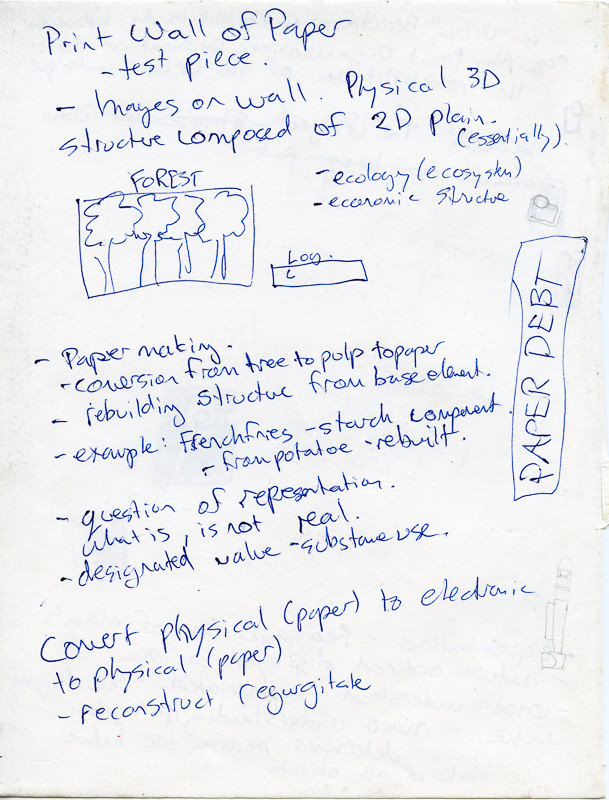 Print Wall of Paper
- test piece.
- Images on wall. Physical 3D
structure composed of 2D plain.
(essentially).
- ecology (ecosystem)
- economic structure
FOREST
Log.
L
PAPER DEBT
- Paper making.
- conversion from tree to pulp to paper
- rebuilding structure from base element.
- example: Frenchfries - starch component.
- from potatoe - rebuilt.
- question of representation.
what is, is not real.
- designated value - substance use.
Convert physical (paper) to electronic
to physical (paper)
- reconstruct regurgitate